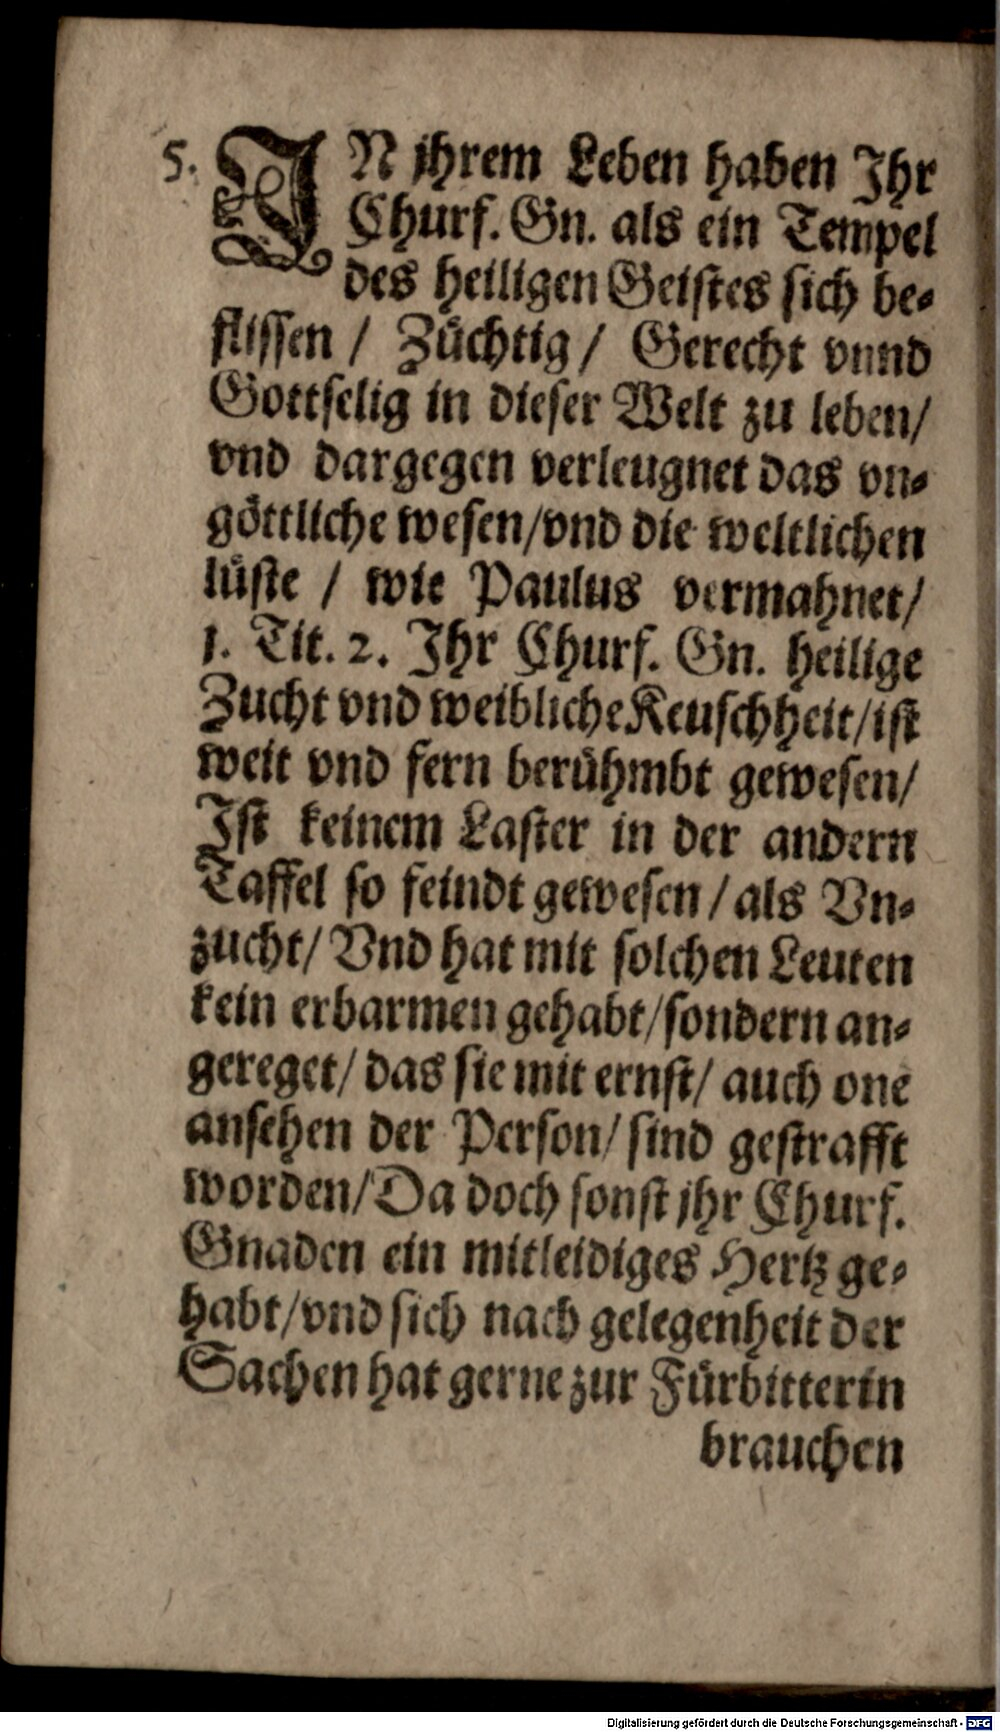 5. IN jhrem Leben haben Ihr
Churf. Gn. als ein Tempel
des heiligen Geistes sich be⸗
flissen / Züchtig / Gerecht vnnd
Gottselig in dieser Welt zu leben/
vnd dargegen verleugnet das vn⸗
göttliche wesen/vnd die weltlichen
lüste / wie Paulus vermahnet/
1. Tit. 2. Ihr Churf. Gn. heilige
Zucht vnd weibliche Keuschheit/ist
weit vnd fern berühmbt gewesen/
Ist keinem Laster in der andern
Taffel so feindt gewesen / als Vn⸗
zucht/ Vnd hat mit solchen Leuten
kein erbarmen gehabt/sondern an⸗
gereget/ das sie mit ernst/ auch one
ansehen der Person/ sind gestrafft
worden/Da doch sonst jhr Churf.
Gnaden ein mitleidiges Hertz ge⸗
habt/vnd sich nach gelegenheit der
Sachen hat gerne zur Fürbitterin
brauchen
Digitalisierung gefördert durch die Deutsche Forschungsgemeinschaft - DFG